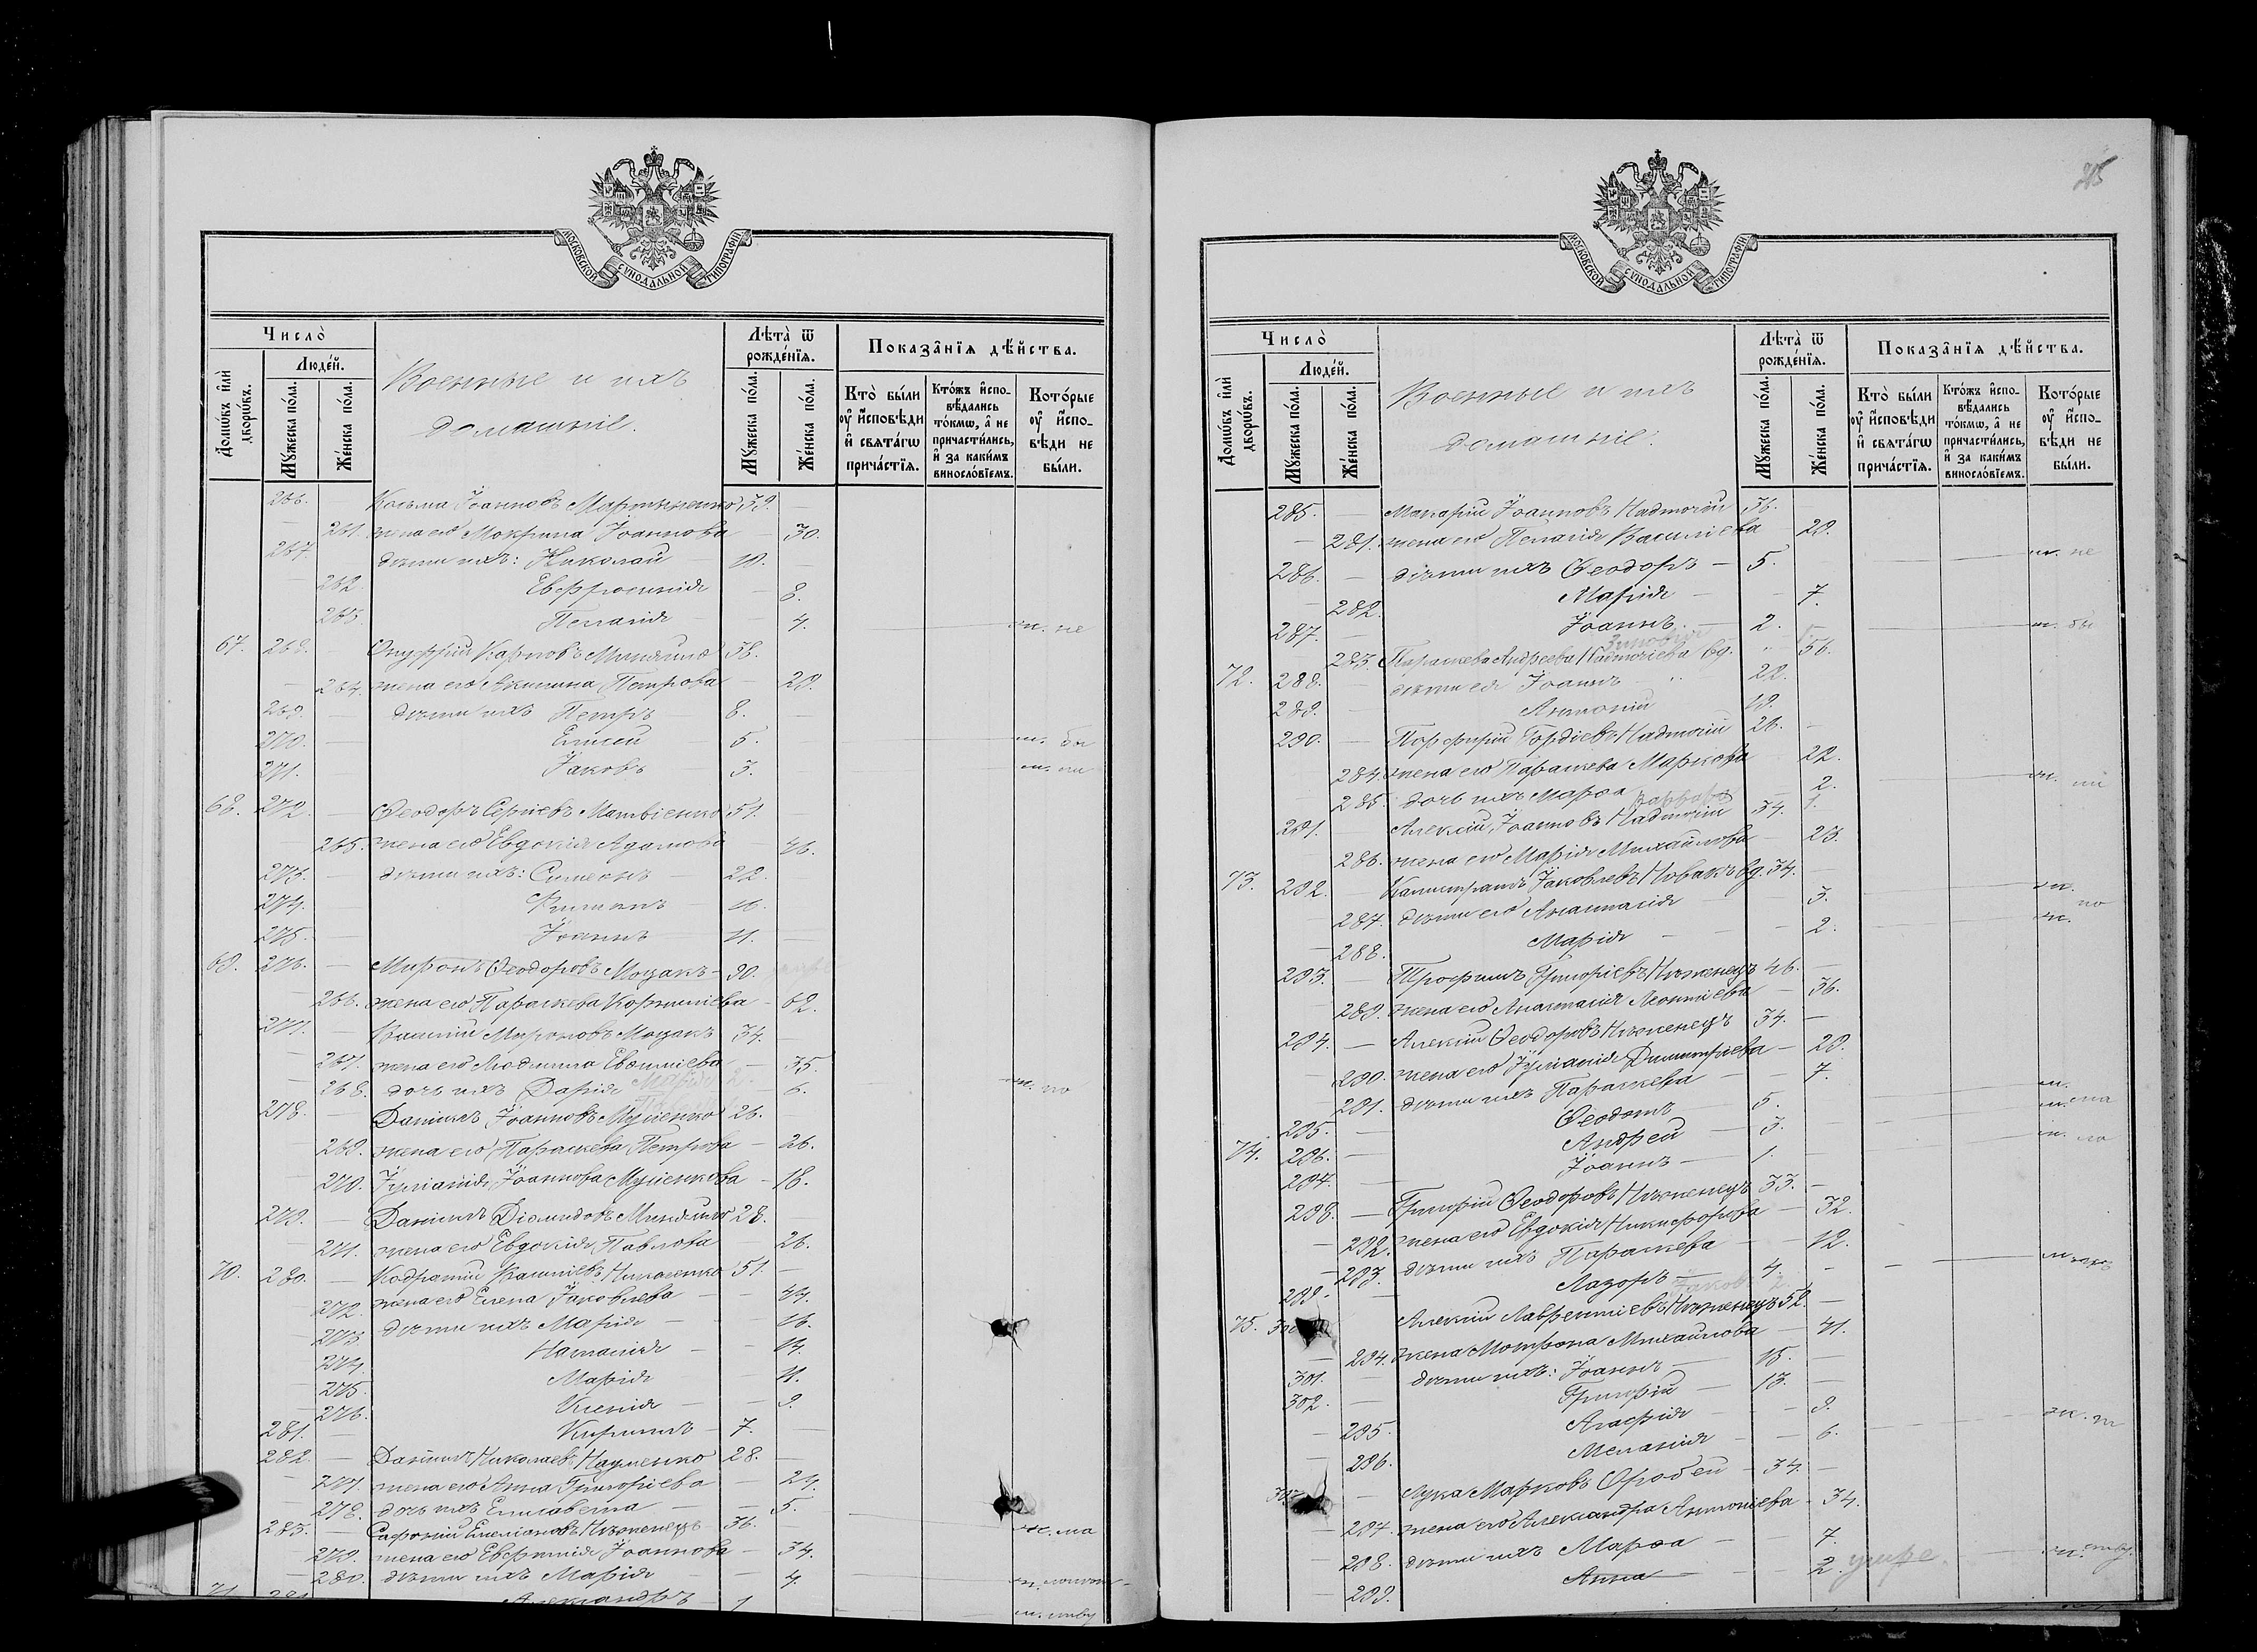 МОСКОВСКОЙ СУНОДАЛЬНОЙ ТИПОГРАФІИ
Число̀
Домѡ́въ и҆лѝ дворѡ́въ.
Люде́й.
Мꙋ́жеска по́ла.
Же́нска по́ла.
Военные и ихъ
домашніе.
Лѣта̀ ѿ рожде́нїѧ.
Мꙋ́жеска по́ла.
Же́нска по́ла.
Показа̑нїѧ дѣ́йства.
Кто̀ бы́ли ᲂу҆ и҆́сповѣди и҆ свѧта́гѡ прича́стїѧ.
Кто́жъ и҆спо-вѣ́дались то́кмѡ, а҆ не причасти́лись, и҆ за каки́мъ винослѡ́вїемъ.
Кото́рые ᲂу҆ и҆́спо-вѣди не бы́ли.
266. — Козьма Іоанновъ Мартыненко 39. —
— 261. жена его Мокрина Іоаннова — 30.
267. — дѣти ихъ: Николай 10. —
— 262. Евфросинія — 8.
— 263. Пелагія — 4. м. не
67. 268. — Онуфрій Карповъ 38.
— 264. жена его Акилина Петрова — 29.
269. — дѣти ихъ Петръ 8. —
270. — Елисей 5. м. бы
271. — Іаковъ 3. м. ли
68. 272. — Ѳеодоръ Сергіевъ Матвіенко 51. —
— 265. жена его Евдокія Адамова — 46.
273. — дѣти ихъ: Симеонъ 22.
274. — Филиппъ 16.
275. — Іоаннъ 11. —
69. 276. — Миронъ Ѳеодоровъ Моцакъ 90.
— 266. жена его Параскева Корниліева — 62.
277. — Василій Мироновъ Моцакъ 34. —
— 267. жена его Людмила — 35.
— 268. дочь ихъ Дарія Марія 2. — 6. м. по
278. — Даніилъ Іоанновъ Мусіенко 26. —
— 269. жена его Параскева Петрова — 26.
270. Іуліанія Іоаннова Мусіенкова — 18.
279. — Даніилъ Діомидовъ 28.
— 271. жена его Евдокія Павлова — 26.
70. 280. — Кодратій Василіевъ 51. —
— 272. жена его Елена Іаковлева — 44.
— 273. дѣти ихъ Марія — 16.
— 274. Наталія — 14.
— 275. Марія — 11.
— 276. Ксенія — 9.
281. — Кириллъ 7. —
282. — Даніилъ Николаевъ Науменко 28. —
— 277. жена его Анна Григоріева — 24.
— 278. дочь ихъ Елисавета — 5. м. ма
283. — Сафроній Емеліановъ Нѣженецъ 36.
— 279. жена его Евфимія Іоаннова — 34.
— 280. дѣти ихъ Марія — 4.
71. 284. Александръ 1 м. ству
МОСКОВСКОЙ СУНОДАЛЬНОЙ ТИПОГРАФІИ
Число̀
Домѡ́въ и҆лѝ дворѡ́въ.
Люде́й.
Мꙋ́жеска по́ла.
Же́нска по́ла.
Военные и ихъ
домашніе.
Лѣта̀ ѿ рожде́нїѧ.
Мꙋ́жеска по́ла.
Же́нска по́ла.
Показа̑нїѧ дѣ́йства.
Кто̀ бы́ли ᲂу҆ и҆́сповѣди и҆ свѧта́гѡ прича́стїѧ.
Кто́жъ и҆спо-вѣ́дались то́кмѡ, а҆ не причасти́лись, и҆ за каки́мъ винослѡ́вїемъ.
Кото́рые ᲂу҆ и҆́спо-вѣди не бы́ли.
285. — Макарій Іоанновъ Надточій 36. —
— 281. жена его Пелагія Василіева — 29.
286. — дѣти ихъ Ѳеодоръ — 5. м. не
— 282. Марія — 7.
287. — Іоаннъ 2. м. бы
— 283. Параскева Андреева Надточіева вд. 56.
72. 288. — дѣти ея Іоаннъ 22.
289. — Антоній 19.
290. — Порфирій Гордіевъ Надточій 26. —
284. жена его Параскева Маркова 22.
— 285. дочь ихъ Марѳа Варвара — 2. 1. м. ли
291. — Алексій Іоанновъ Надточій 34.
286. жена его Марія Михаилова — 23.
73. 292. — Калистратъ Іаковлевъ Новакъ вд. 34. —
— 287. дѣти его Анастасія — 3. м. по
— 288. Марія — 2. м.
293. — Трофимъ Григоріевъ Нѣженецъ 46. —
— 289. жена его Анастасія Леонтіева — 36.
294. — Алексій Ѳеодоровъ Нѣженецъ 34. —
— 290. жена его Іуліанія Димитріева — 29.
— 291. дѣти ихъ Параскева — 7.
295. — Ѳеодотъ — 5. м. ма
74. 296. — Андрей — 3. м. ло
297. — Іоаннъ — 1.
298. — Григорій Ѳеодоровъ Нѣженецъ 33. —
— 292. жена его Евдокія Никифорова — 32.
— 293. дѣти ихъ Параскева — 12.
299. — Лазорь Іаковъ 2. 4. —
75. 300 Алексій Лаврентіевъ Нѣженецъ 52. —
— 294. жена Мотрона Михаилова — 41.
301. — дѣти ихъ: Іоаннъ — 15. —
302. — Григорій — 13. —
— 295. Агафія — 9.
— 296. Меланія — 6.
303 — Лука Марковъ Оробей — 34. —
— 297. жена его Александра Антоніева — 34.
— 298. дѣти ихъ Марѳа — 7.
— 299. Анна — 2. умре м. ству.